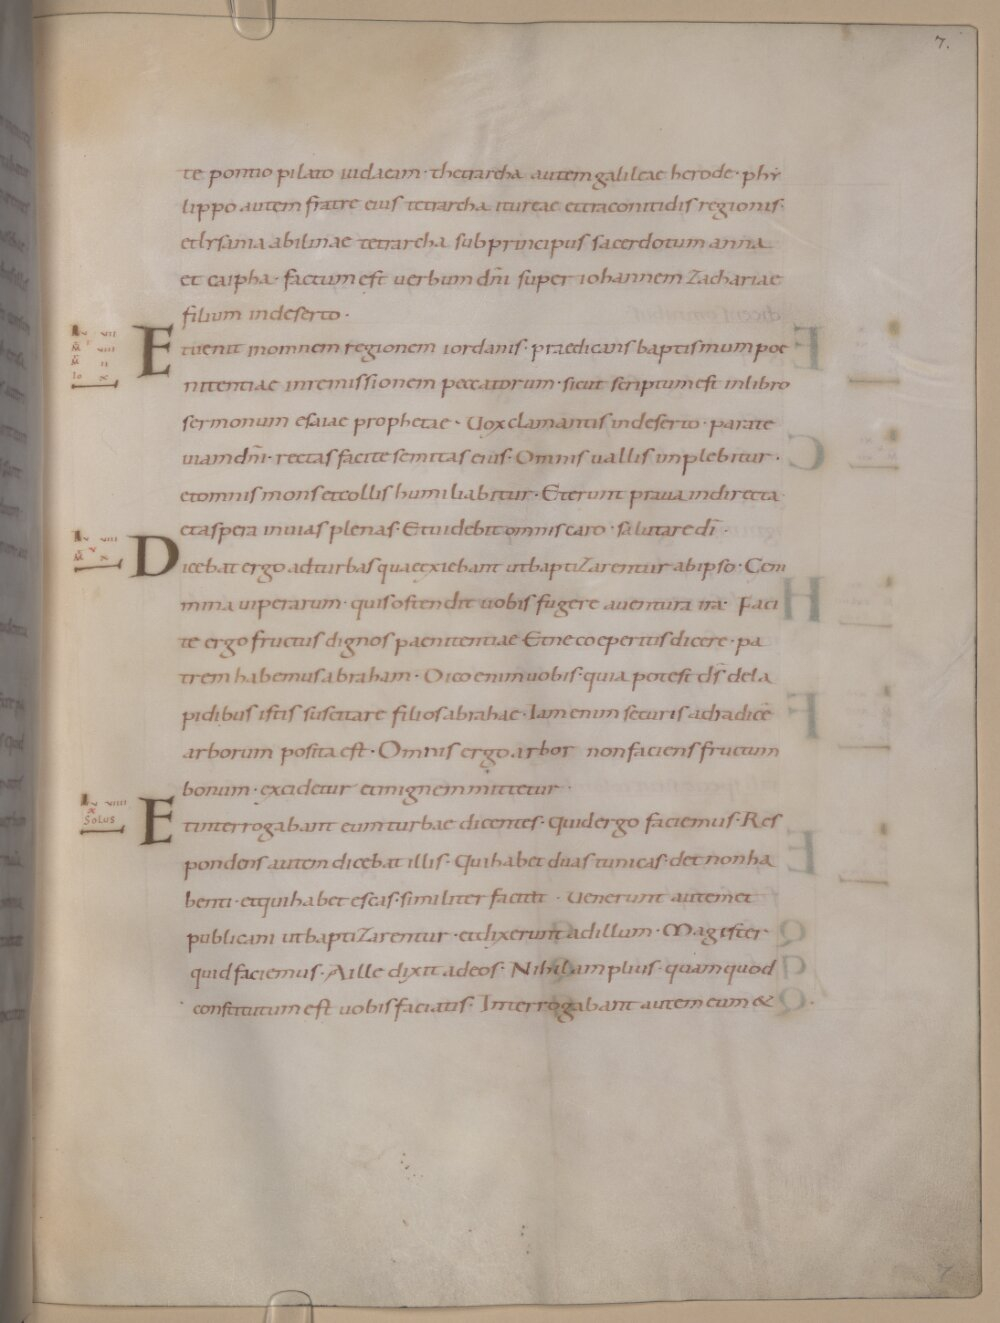 7.
te pontio pilato iudaeam · thetrarcha autem galileae herode · phy
lippo autem fratre eius tetrarcha itureae ettraconitidis regionis ·
etlysania abilinae tetrarcha sub principus sacerdotum anna
et caipha · factum est uerbum dn̄i super iohannem Zachariae
filium indeserto ·
Etuenit inomnem regionem iordanis · praedicans baptismum poe
nitentiae inremissionem peccatorum · sicut scriptum est inlibro
sermonum esaiae prophetae · Uox clamantis indeserto · parate
uiam dn̄i · rectas facite semitas eius · Omnis uallis implebitur ·
etomnis mons etcollis humiliabitur · Eterunt praua indirecta
etaspera inuias plenas · Etuidebit omnis caro · salutare dī ·
Dicebat ergo adturbas quaeexiebant utbaptiZarentur abipso · Gen
mina uiperarum · quis ostendit uobis fugere auentura ira · Faci
te ergo fructus dignos paenitentiae · Etne coeperitis dicere · pa
trem habemus abraham · Dico enim uobis · quia potest ds̄ dela
pidibus istis suscitare filios abrahae · Iam enim securis adradicē
arborum posita est · Omnis ergo arbor non faciens fructum
bonum · excidetur etinignem mittetur ·
SOLUS
Etinterrogabant eum turbae dicentes · Quid ergo faciemus · Res
pondens autem dicebat illis · Qui habet duas tunicas · det non ha
benti · etqui habet escas · similiter faciat · Uenerunt autem et
publicani utbaptiZarentur · etdixerunt adillum · Magister
quid faciemus · Aille dixit adeos · Nihil amplius · quam quod
constitutum est uobis faciatis · Interrogabant autem eum &
7